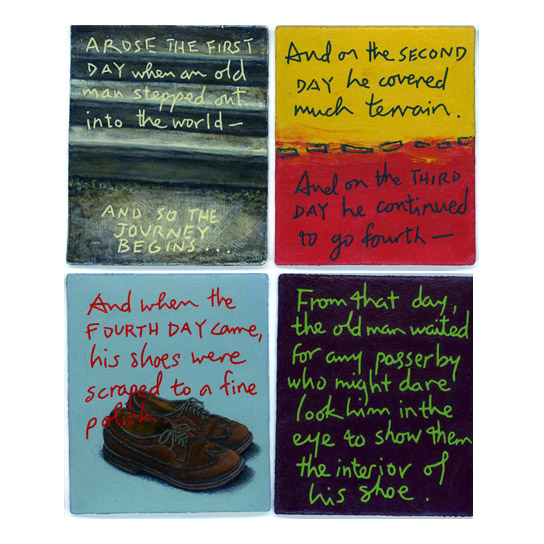 AROSE THE FIRST
DAY when an old
man stepped out
into the world—
AND SO THE
JOURNEY
BEGINS...
And on the SECOND
DAY he covered
much terrain.
And on the THIRD
DAY he continued
to go fourth—
And when the
FOURTH DAY came,
his shoes were
scraped to a fine
polish.
From that day,
the old man waited
for any passerby
who might dare
look him in the
eye to show them
the interior of
his shoe.